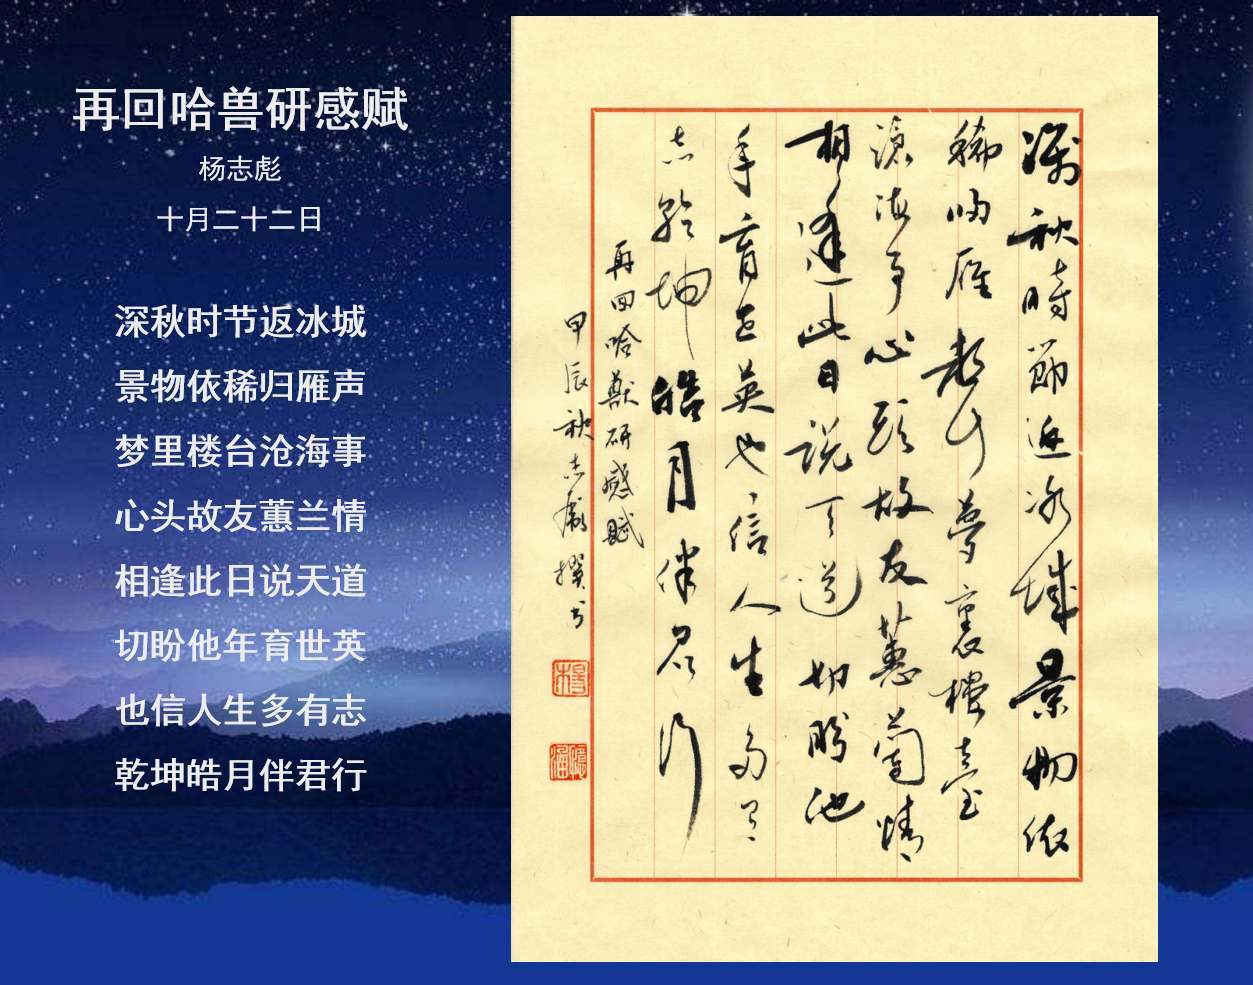 再回哈兽研感赋
杨志彪
十月二十二日
深秋时节返冰城
景物依稀归雁声
梦里楼台沧海事
心头故友蕙兰情
相逢此日说天道
切盼他年育世英
也信人生多有志
乾坤皓月伴君行
深秋時節返冰城景物依
稀歸雁聲夢裏樓臺
滄海事心頭故友蕙蘭情
相逢此日說天道切盼他
年育世英也信人生多有
志乾坤皓月伴君行
再回哈獸研感賦
甲辰秋志彪撰书